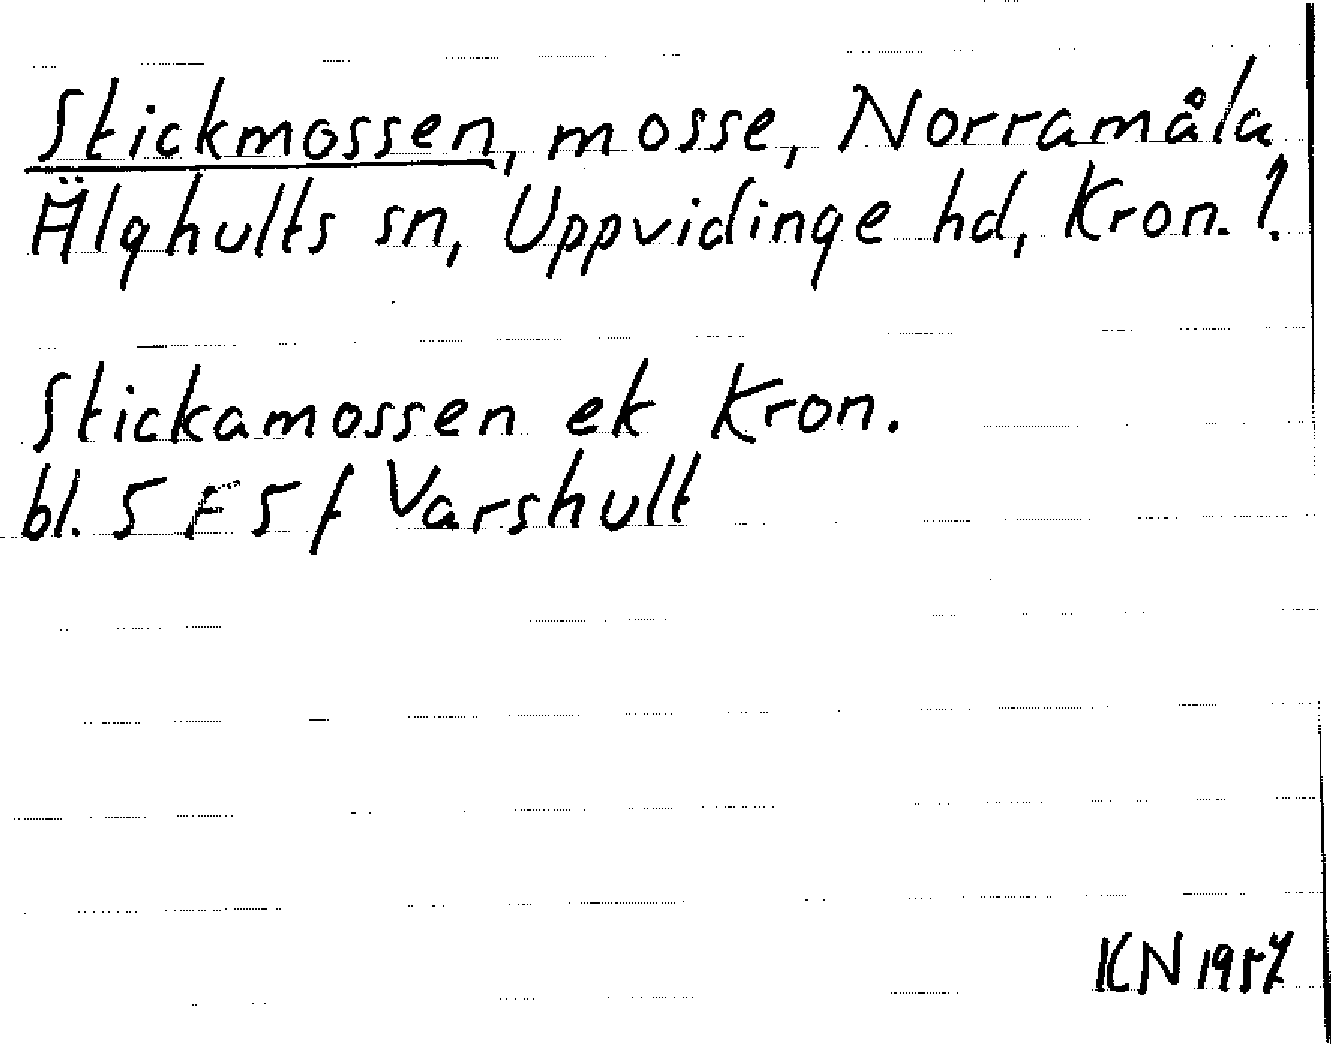 Stickmossen, mosse, Norramåla
Älghults sn, Uppvidinge hd, Kron. l.
Stickamossen ek Kron.
bl. 5 F 5 f Varshult
KN 1957